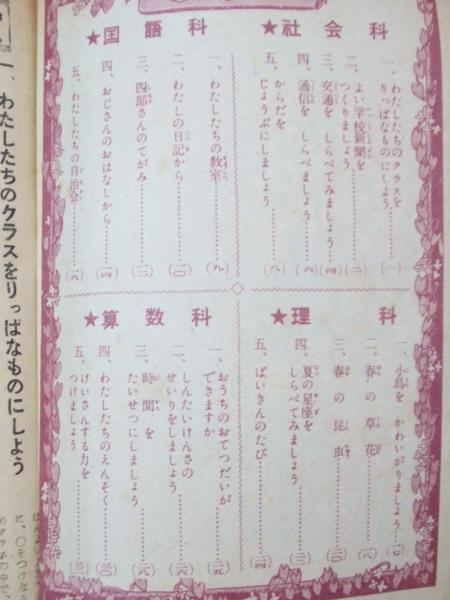 ★社会科
一、わたしたちのクラスを
りっぱなものにしよう………(一)
二、よい学校新聞を
つくりましょう………(二)
三、交通を しらべてみましょう…(四)
四、通信を しらべましょう………(六)
五、からだを
じょうぶにしましょう………(八)
★国語科
一、わたしたちの教室………(九)
二、わたしの日記から………(一〇)
三、四郎さんのてがみ………(一二)
四、おじさんのおはなしから………(一四)
五、わたしたちの自治会………(一六)
★理科
一、小鳥を かわいがりましょう…(一七)
二、春の草花………(一八)
三、春の昆虫………(二〇)
四、夏の星座を
しらべてみましょう………(二二)
五、ばいきんのたび………(二四)
★算数科
一、おうちのおてつだいが
できますか………(二五)
二、しんたいけんさの
せいりをしましょう………(二六)
三、時間を
たいせつにしましょう………(二八)
四、わたしたちのえんそく………(三〇)
五、けいさんする力を
つけましょう………
一、わたしたちのクラスをりっぱなものにしよう
に、〇をつけな